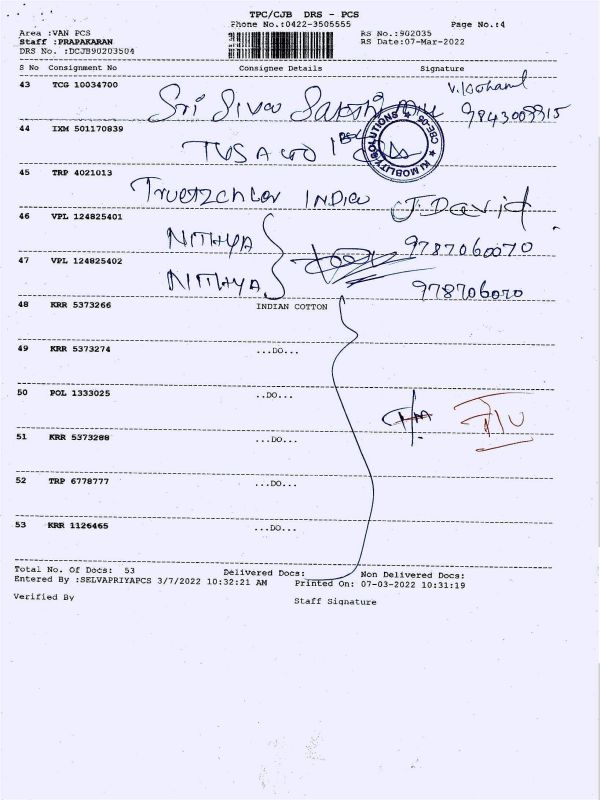 TPC/CJB DRS - PCS
Phone No.:0422-3505555 Page No.:4
Area :VAN PCS RS No.:902035
Staff :PRAPAKARAN RS Date:07-Mar-2022
DRS No. :DCJB90203504
S No Consignment No Consignee Details Signature
43 TCG 10034700 Sri Siva
44 IXM 501170839 TVS Auto
45 TRP 4021013 Truetzchler India J. David
46 VPL 124825401 NITHYA 9787060070
47 VPL 124825402 NITHYA
48 KRR 5373266 INDIAN COTTON
49 KRR 5373274 ...DO...
50 POL 1333025 ..DO...
51 KRR 5373288 ...DO...
52 TRP 6778777 ...DO...
53 KRR 1126465 ...DO...
Total No. Of Docs: 53 Delivered Docs: Non Delivered Docs:
Entered By :SELVAPRIYAPCS 3/7/2022 10:32:21 AM Printed On: 07-03-2022 10:31:19
Verified By Staff Signature